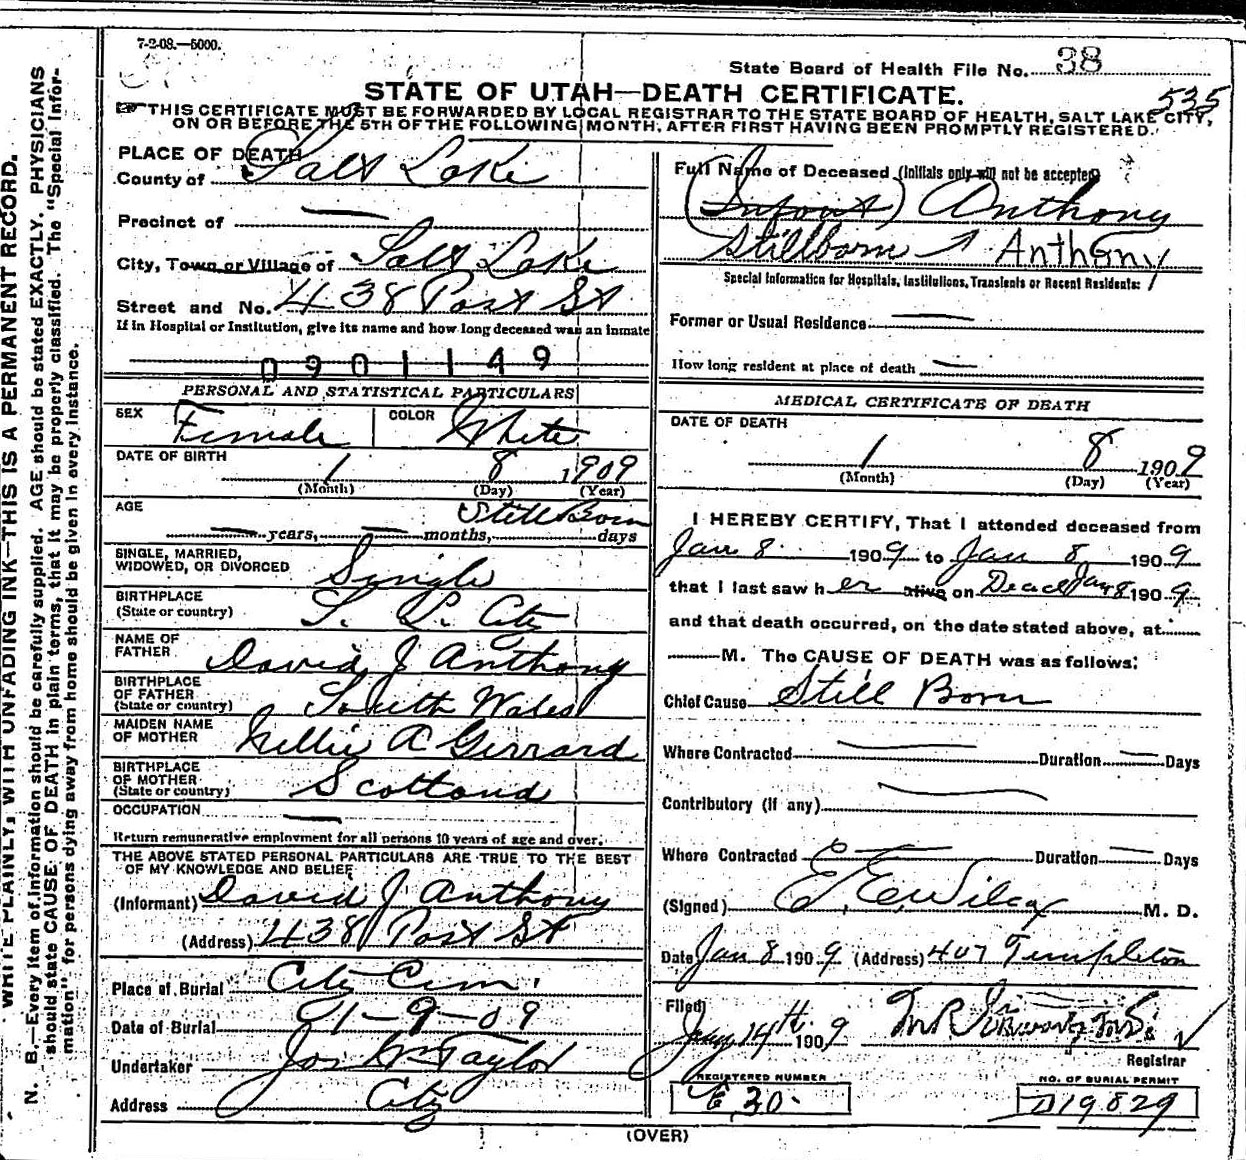 7-2-08.—5000.
State Board of Health File No. 38
STATE OF UTAH—DEATH CERTIFICATE.
535
THIS CERTIFICATE MUST BE FORWARDED BY LOCAL REGISTRAR TO THE STATE BOARD OF HEALTH, SALT LAKE CITY,
ON OR BEFORE THE 5TH OF THE FOLLOWING MONTH, AFTER FIRST HAVING BEEN PROMPTLY REGISTERED.
PLACE OF DEATH
County of Salt Lake
Precinct of —
City, Town or Village of Salt Lake
Street and No. 438 Post St
If in Hospital or Institution, give its name and how long deceased was an inmate
0901149
PERSONAL AND STATISTICAL PARTICULARS
SEX Female COLOR White
DATE OF BIRTH
1 8 1909
(Month) (Day) (Year)
AGE Still Born
— years, — months, days
SINGLE, MARRIED,
WIDOWED, OR DIVORCED Single
BIRTHPLACE
(State or country) S. L. City
NAME OF
FATHER David J Anthony
BIRTHPLACE
OF FATHER
(State or country) South Wales
MAIDEN NAME
OF MOTHER Nellie A Gerrard
BIRTHPLACE
OF MOTHER
(State or country) Scotland
OCCUPATION —
Return remunerative employment for all persons 10 years of age and over.
THE ABOVE STATED PERSONAL PARTICULARS ARE TRUE TO THE BEST
OF MY KNOWLEDGE AND BELIEF
(Informant) David J Anthony
(Address) 438 Post St
Place of Burial City Cem.
Date of Burial 1-9-09
Undertaker Jos Wm Taylor
Address City
Full Name of Deceased (Initials only will not be accepted)
(Infant) Anthony
Stillborn Anthony
Special Information for Hospitals, Institutions, Transients or Recent Residents:
Former or Usual Residence —
How long resident at place of death —
MEDICAL CERTIFICATE OF DEATH
DATE OF DEATH
1 8 1909
(Month) (Day) (Year)
I HEREBY CERTIFY, That I attended deceased from
Jan 8 1909 to Jan 8 1909
that I last saw her alive on Dead Jan 8 1909
and that death occurred, on the date stated above, at
M. The CAUSE OF DEATH was as follows:
Chief Cause Still Born
Where Contracted — Duration — Days
Contributory (if any) —
Where Contracted — Duration — Days
(Signed) E. E. Wilcox M. D.
Date Jan 8 1909 (Address) 407 Templeton
Filed
Jany 14th 1909
Registrar
REGISTERED NUMBER
30
NO. OF BURIAL PERMIT
D19829
(OVER)
WRITE PLAINLY, WITH UNFADING INK—THIS IS A PERMANENT RECORD.
N. B.—Every item of information should be carefully supplied. AGE should be stated EXACTLY. PHYSICIANS
should state CAUSE OF DEATH in plain terms, that it may be properly classified. The "Special Infor-
mation" for persons dying away from home should be given in every instance.